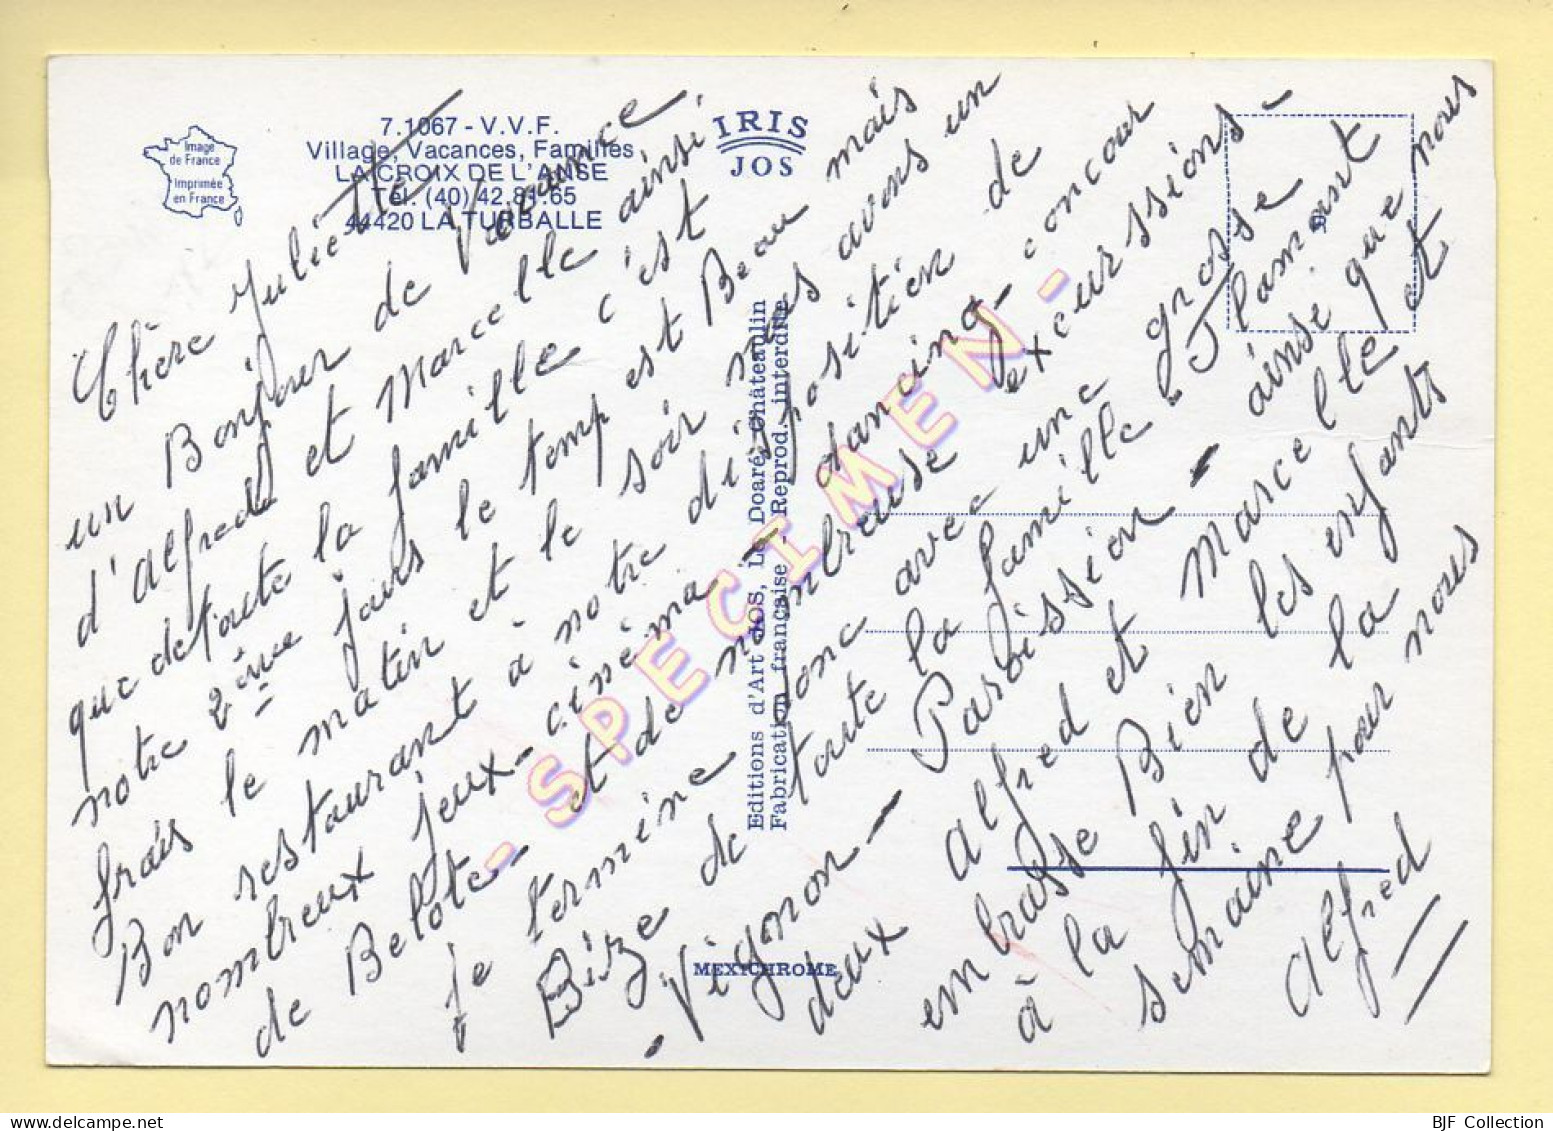 7.1067 - V.V.F.
Village, Vacances, Familles
LA CROIX DE L'ANSE
Tél. (40) 42.81.65
44420 LA TURBALLE
Image
de France
Imprimée
en France
IRIS
JOS
Chère Juliette
un Bonjour de Vacance
d'Alfred et Marcelle ainsi
que de toute la famille c'est
notre 2ème jours le temp est Beau mais
frais le matin et le soir nous avons un
Bon restaurant à notre disposition de
nombreux jeux - cinéma - dancing - concour
de Belote - et de nombreuse excurssions -
je termine donc avec une grosse
Bize de toute la famille - Flamant
- Vignon - Paroission - ainsi que nous
deux Alfred et Marcelle et
embrasse Bien les enfants
à la fin de la
semaine pour nous
Alfred
Editions d'Art JOS, Le Doaré, Châteaulin
Fabrication française - Reprod. interdite
MEXICHROME
- SPECIMEN -
BJF Collection